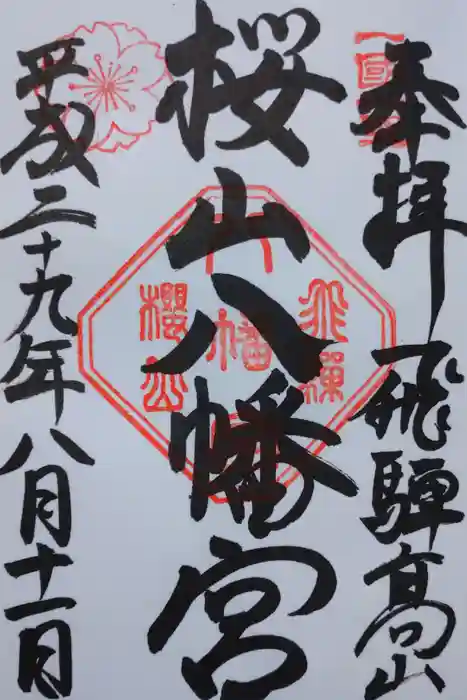 奉拝 飛騨高山
桜山八幡宮
平成二十九年八月十一日
飛騨
八幡宮
櫻山